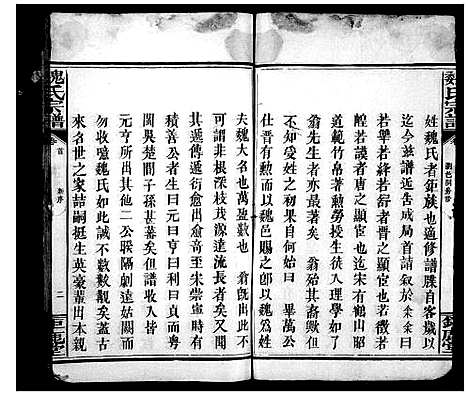 魏氏宗譜
姓魏氏者鉅族也適修譜牒自客歲以
迄今茲譜近告成局首請敘於余余曰
若犖若絳若舒者晉之顯宦也若徵若
謩若謨者唐之顯宦也迄宋有鶴山昭
範竹廊等者著勲勞授生徒入理學如了
翁先生者亦最著矣 翁殆其裔歟但
不知受姓之初果自何始 畢萬公
仕晉有勲而以魏邑賜之卽以魏爲姓
夫魏大名也萬盈數也 翁旣出此不
可謂非根深枝茂源遠流長者矣又閱
其遞傳遞衍愈出愈奇至朱崇寕時有
積善貢公者生曰元曰亨曰利曰貞今
閱吳楚間子孫甚蕃矣但譜收入皆
元亨所出其他二公聯隔劇遠姑闕而
勿收噫魏氏如此誠不數數觀矣蓋古
來名世之家喆嗣挺生英豪輩出本親
魏氏宗譜
卷首
新序
二
鹿堂